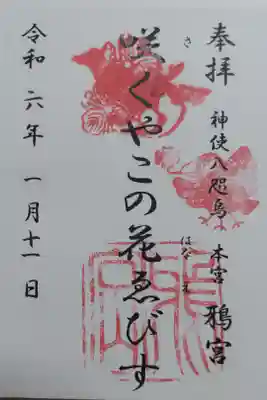 奉拝 神使八咫烏 本宮 鴉宮
咲くやこの花ゑびす
さ
はな ゑ
令和六年一月十一日